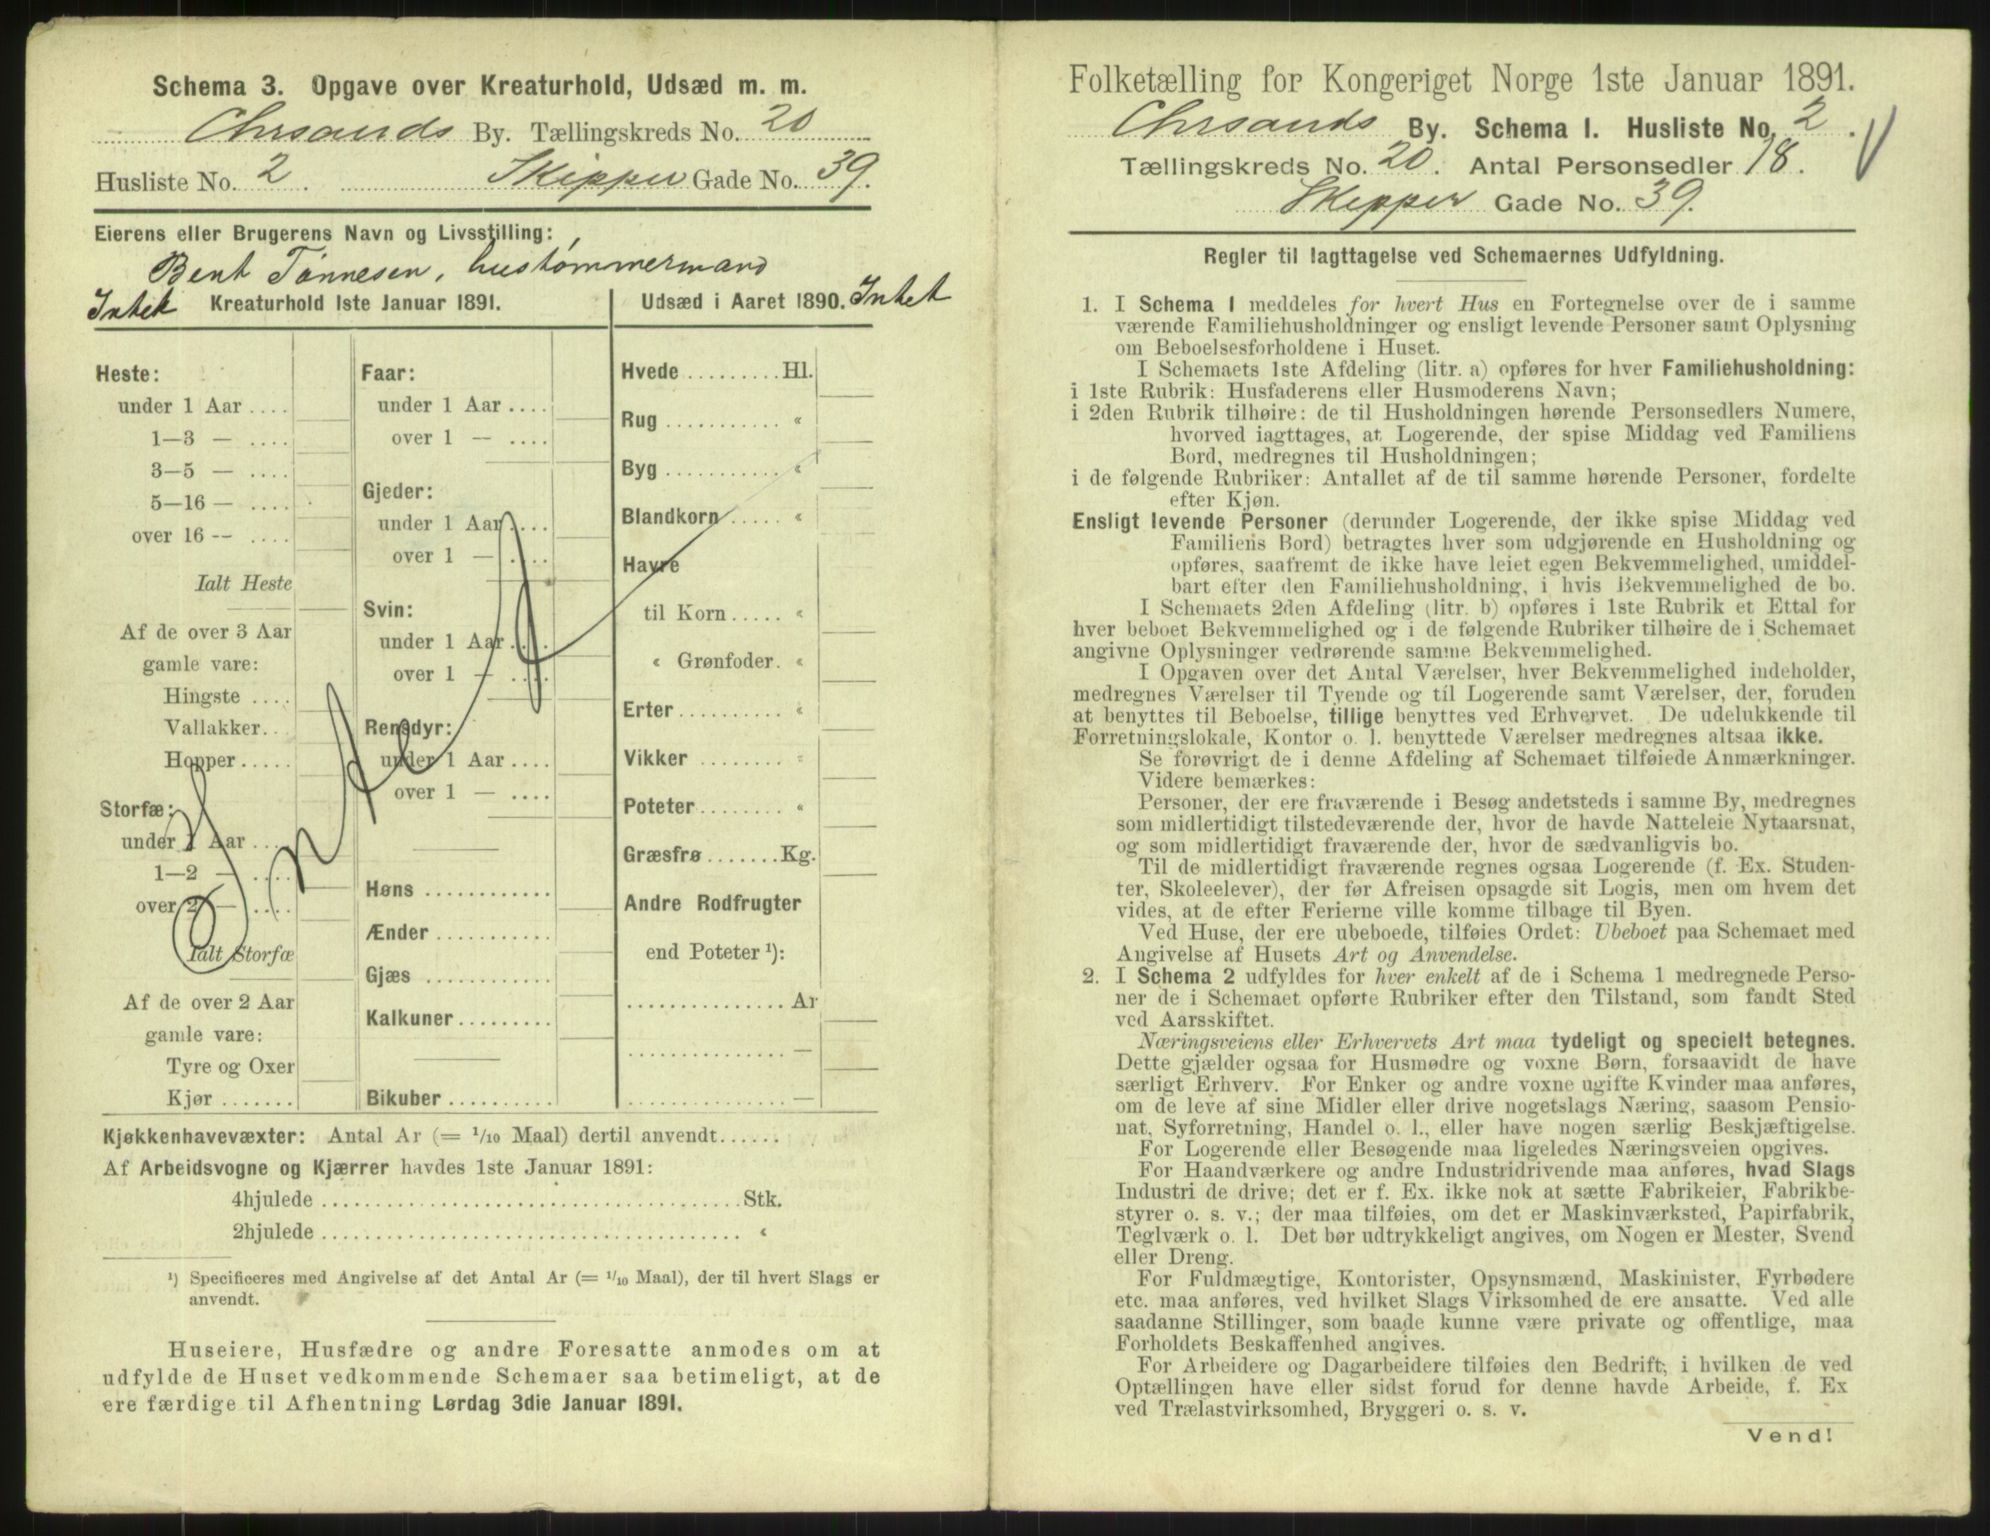 Schema 3. Opgave over Kreaturhold, Udsæd m. m.
Chrsands By. Tællingskreds No. 20
Husliste No. 2. Skipper Gade No. 39.
Eierens eller Brugerens Navn og Livsstilling:
Bent Tønnesen, hustømmermand
Intet Kreaturhold 1ste Januar 1891.
Udsæd i Aaret 1890. Intet
Heste:
under 1 Aar ....
1—3 — ....
3—5 — ....
5—16 — ....
over 16 -- ....
Ialt Heste
Af de over 3 Aar
gamle vare:
Hingste ....
Vallakker..
Hopper.....
Storfæ:
under 1 Aar ....
1—2 — ....
over 2 — ....
Ialt Storfæ
Af de over 2 Aar
gamle vare:
Tyre og Oxer
Kjør .......
Faar:
under 1 Aar ....
over 1 — ....
Gjeder:
under 1 Aar ....
over 1 — ....
Svin:
under 1 Aar ....
over 1 — ....
Rensdyr:
under 1 Aar ....
over 1 — ....
Høns ............
Ænder ...........
Gjæs ............
Kalkuner.........
Bikuber ..........
Hvede .........Hl.
Rug ........... «
Byg ........... «
Blandkorn ..... «
Havre
til Korn ..... «
« Grønfoder. «
Erter .......... «
Vikker ........ «
Poteter ........ «
Græsfrø .......Kg.
Andre Rodfrugter
end Poteter ¹):
............... Ar
............... —
............... —
Kjøkkenhavevæxter: Antal Ar (= 1/10 Maal) dertil anvendt......
Af Arbeidsvogne og Kjærrer havdes 1ste Januar 1891:
4hjulede ........................................Stk.
2hjulede ........................................ «
¹) Specificeres med Angivelse af det Antal Ar (= 1/10 Maal), der til hvert Slags er
anvendt.
Huseiere, Husfædre og andre Foresatte anmodes om at
udfylde de Huset vedkommende Schemaer saa betimeligt, at de
ere færdige til Afhentning Lørdag 3die Januar 1891.
Folketælling for Kongeriget Norge 1ste Januar 1891.
Chrsands By. Schema 1. Husliste No. 2.
Tællingskreds No. 20. Antal Personsedler 18.
Skipper Gade No. 39.
Regler til Iagttagelse ved Schemaernes Udfyldning.
1. I Schema 1 meddeles for hvert Hus en Fortegnelse over de i samme
værende Familiehusholdninger og ensligt levende Personer samt Oplysning
om Beboelsesforholdene i Huset.
I Schemaets 1ste Afdeling (litr. a) opføres for hver Familiehusholdning:
i 1ste Rubrik: Husfaderens eller Husmoderens Navn;
i 2den Rubrik tilhøire: de til Husholdningen hørende Personsedlers Numere,
hvorved iagttages, at Logerende, der spise Middag ved Familiens
Bord, medregnes til Husholdningen;
i de følgende Rubriker: Antallet af de til samme hørende Personer, fordelte
efter Kjøn.
Ensligt levende Personer (derunder Logerende, der ikke spise Middag ved
Familiens Bord) betragtes hver som udgjørende en Husholdning og
opføres, saafremt de ikke have leiet egen Bekvemmelighed, umiddel-
bart efter den Familiehusholdning, i hvis Bekvemmelighed de bo.
I Schemaets 2den Afdeling (litr. b) opføres i 1ste Rubrik et Ettal for
hver beboet Bekvemmelighed og i de følgende Rubriker tilhøire de i Schemaet
angivne Oplysninger vedrørende samme Bekvemmelighed.
I Opgaven over det Antal Værelser, hver Bekvemmelighed indeholder,
medregnes Værelser til Tyende og til Logerende samt Værelser, der, foruden
at benyttes til Beboelse, tillige benyttes ved Erhvervet. De udelukkende til
Forretningslokale, Kontor o. l. benyttede Værelser medregnes altsaa ikke.
Se forøvrigt de i denne Afdeling af Schemaet tilføiede Anmærkninger.
Videre bemærkes:
Personer, der ere fraværende i Besøg andetsteds i samme By, medregnes
som midlertidigt tilstedeværende der, hvor de havde Natteleie Nytaarsnat,
og som midlertidigt fraværende der, hvor de sædvanligvis bo.
Til de midlertidigt fraværende regnes ogsaa Logerende (f. Ex. Studen-
ter, Skoleelever), der før Afreisen opsagde sit Logis, men om hvem det
vides, at de efter Ferierne ville komme tilbage til Byen.
Ved Huse, der ere ubeboede, tilføies Ordet: Ubeboet paa Schemaet med
Angivelse af Husets Art og Anvendelse.
2. I Schema 2 udfyldes for hver enkelt af de i Schema 1 medregnede Perso-
ner de i Schemaet opførte Rubriker efter den Tilstand, som fandt Sted
ved Aarsskiftet.
Næringsveiens eller Erhvervets Art maa tydeligt og specielt betegnes.
Dette gjælder ogsaa for Husmødre og voxne Børn, forsaavidt de have
særligt Erhverv. For Enker og andre voxne ugifte Kvinder maa anføres,
om de leve af sine Midler eller drive nogetslags Næring, saasom Pensio-
nat, Syforretning, Handel o. l., eller have nogen særlig Beskjæftigelse.
For Logerende eller Besøgende maa ligeledes Næringsveien opgives.
For Haandværkere og andre Industridrivende maa anføres, hvad Slags
Industri de drive; det er f. Ex. ikke nok at sætte Fabrikeier, Fabrikbe-
styrer o. s. v.; der maa tilføies, om det er Maskinværksted, Papirfabrik,
Teglværk o. l. Det bør udtrykkeligt angives, om Nogen er Mester, Svend
eller Dreng.
For Fuldmægtige, Kontorister, Opsynsmænd, Maskinister, Fyrbødere
etc. maa anføres, ved hvilket Slags Virksomhed de ere ansatte. Ved alle
saadanne Stillinger, som baade kunne være private og offentlige, maa
Forholdets Beskaffenhed angives.
For Arbeidere og Dagarbeidere tilføies den Bedrift, i hvilken de ved
Optællingen have eller sidst forud for denne havde Arbeide, f. Ex
ved Trælastvirksomhed, Bryggeri o. s. v.
Vend!